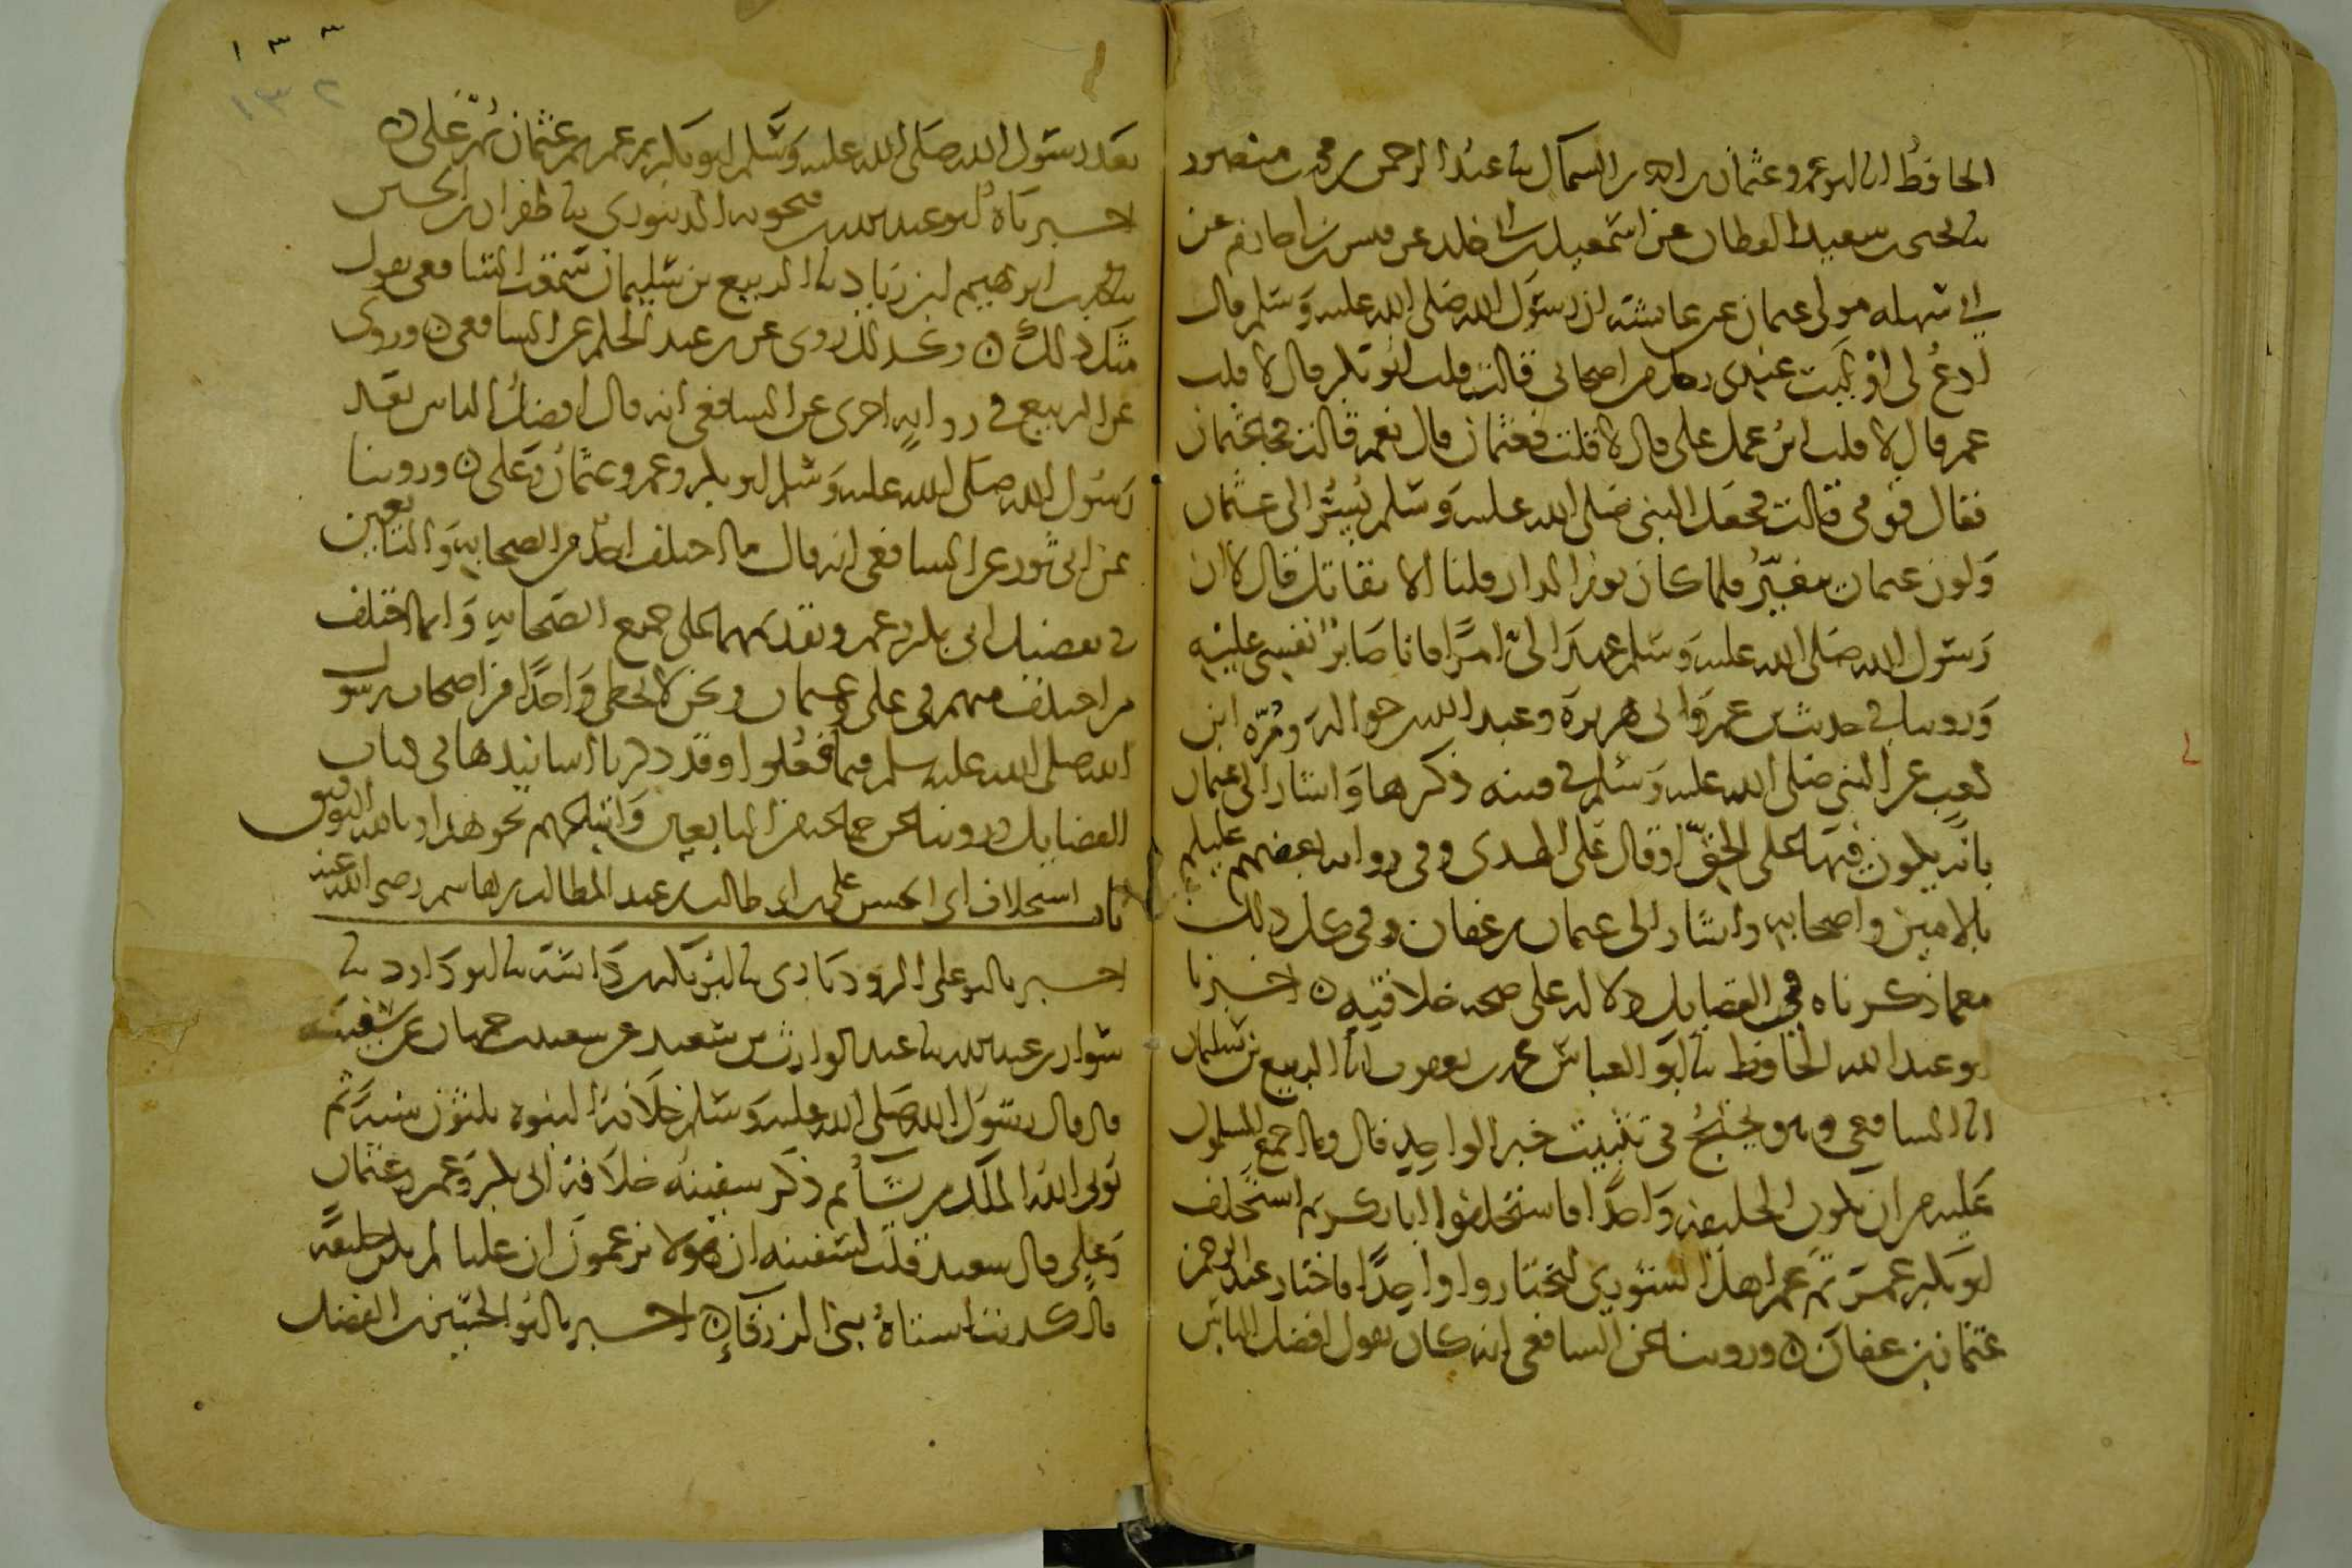 الحافظ انا ابو عمرو عثمان بن احمد بن السماك نا عبد الرحمن بن محمد بن منصور
نا يحيى بن سعيد القطان عن اسمعيل بن ابي خلد عن قيس بن ابي حازم عن
ابي سهله مولى عثمان عن عايشة ان رسول الله صلى الله عليه وسلم قال
ادع لي او ليت عندي رجل من اصحابي قالت قلت ابو بكر قال لا قلت
عمر قال لا قلت ابن عمك علي قال لا قلت فعثمان قال نعم قالت فجا عثمان
فقال قومي قالت فجعل النبي صلى الله عليه وسلم يسر الى عثمان
ولون عثمان يتغير فلما كان يوم الدار قلنا الا نقاتل قال لا ان
رسول الله صلى الله عليه وسلم عهد الي امرا فانا صابر نفسي عليه
وروينا في حديث بن عمر وابي هريرة وعبد الله بن حوالة ومرة ابن
كعب عن النبي صلى الله عليه وسلم في فتنه ذكرها واشار الى عثمان
بانه يكون فيها على الحق او قال على الهدى وفي رواية بعضهم عليكم
بالامين واصحابه واشار الى عثمان بن عفان وفي كل ذلك
مع ما ذكرناه في الفضايل دلاله على صحه خلافته ٥ اخبرنا
ابو عبد الله الحافظ نا ابو العباس محمد بن يعقوب انا الربيع بن سليمان
انا الشافعي وهو يحتج في تثبيت خبر الواحد قال وما اجمع المسلمون
عليه من ان يكون الخليفه واحدا فاستخلفوا ابا بكر ثم استخلف
ابو بكر عمر ثم عمر اهل الشورى ليختاروا واحدا فاختار عبد الرحمن
عثمان بن عفان ٥ وروينا عن الشافعي انه كان يقول افضل الناس
١٣٣
١٣٢
بعد رسول الله صلى الله عليه وسلم ابو بكر ثم عمر ثم عثمان ثم علي ٥
اخبرناه ابو عبد الله بن فنجويه الدينوري نا ظفران بن الحسين
ابرهيم ابن زياد نا الربيع بن سليمان سمعت الشافعي يقول
مثل ذلك ٥ وكذلك روى عن بن عبد الحكم عن الشافعي ٥ وروى
عن الربيع في رواية اخرى عن الشافعي انه قال افضل الناس بعد
رسول الله صلى الله عليه وسلم ابو بكر وعمر وعثمان وعلي ٥ وروينا
عن ابي ثور عن الشافعي انه قال ما اختلف احد من الصحابه والتابعين
في تفضيل ابي بكر وعمر وتقديمهما على جميع الصحابه وانما اختلف
من اختلف منهم في علي وعثمان ونحن لا نخطي واحدا من اصحاب رسول
الله صلى الله عليه وسلم فيما فعلوا وقد ذكرنا اسانيدها في كتاب
الفضايل وروينا عن جماعة من التابعين واتباعهم نحو هذا وبالله التوفيق
باب استخلاف ابي الحسن علي بن ابي طالب بن عبد المطلب بن هاشم رضي الله عنه
اخبرنا ابو علي الروذباري نا ابو بكر بن داسة نا ابو داود نا
سوار بن عبد الله نا عبد الوارث بن سعيد عن سعيد بن جمهان عن سفينة
قال قال رسول الله صلى الله عليه وسلم خلافة النبوة ثلثون سنة ثم
يؤتي الله الملك من يشا ثم ذكر سفينه خلافة ابي بكر وعمر وعثمان
وعلي قال سعيد قلت لسفينه ان هولا يزعمون ان عليا لم يكن خليفة
قال كذبت استاه بني الزرقاء ٥ اخبرنا ابو الحسين بن الفضل